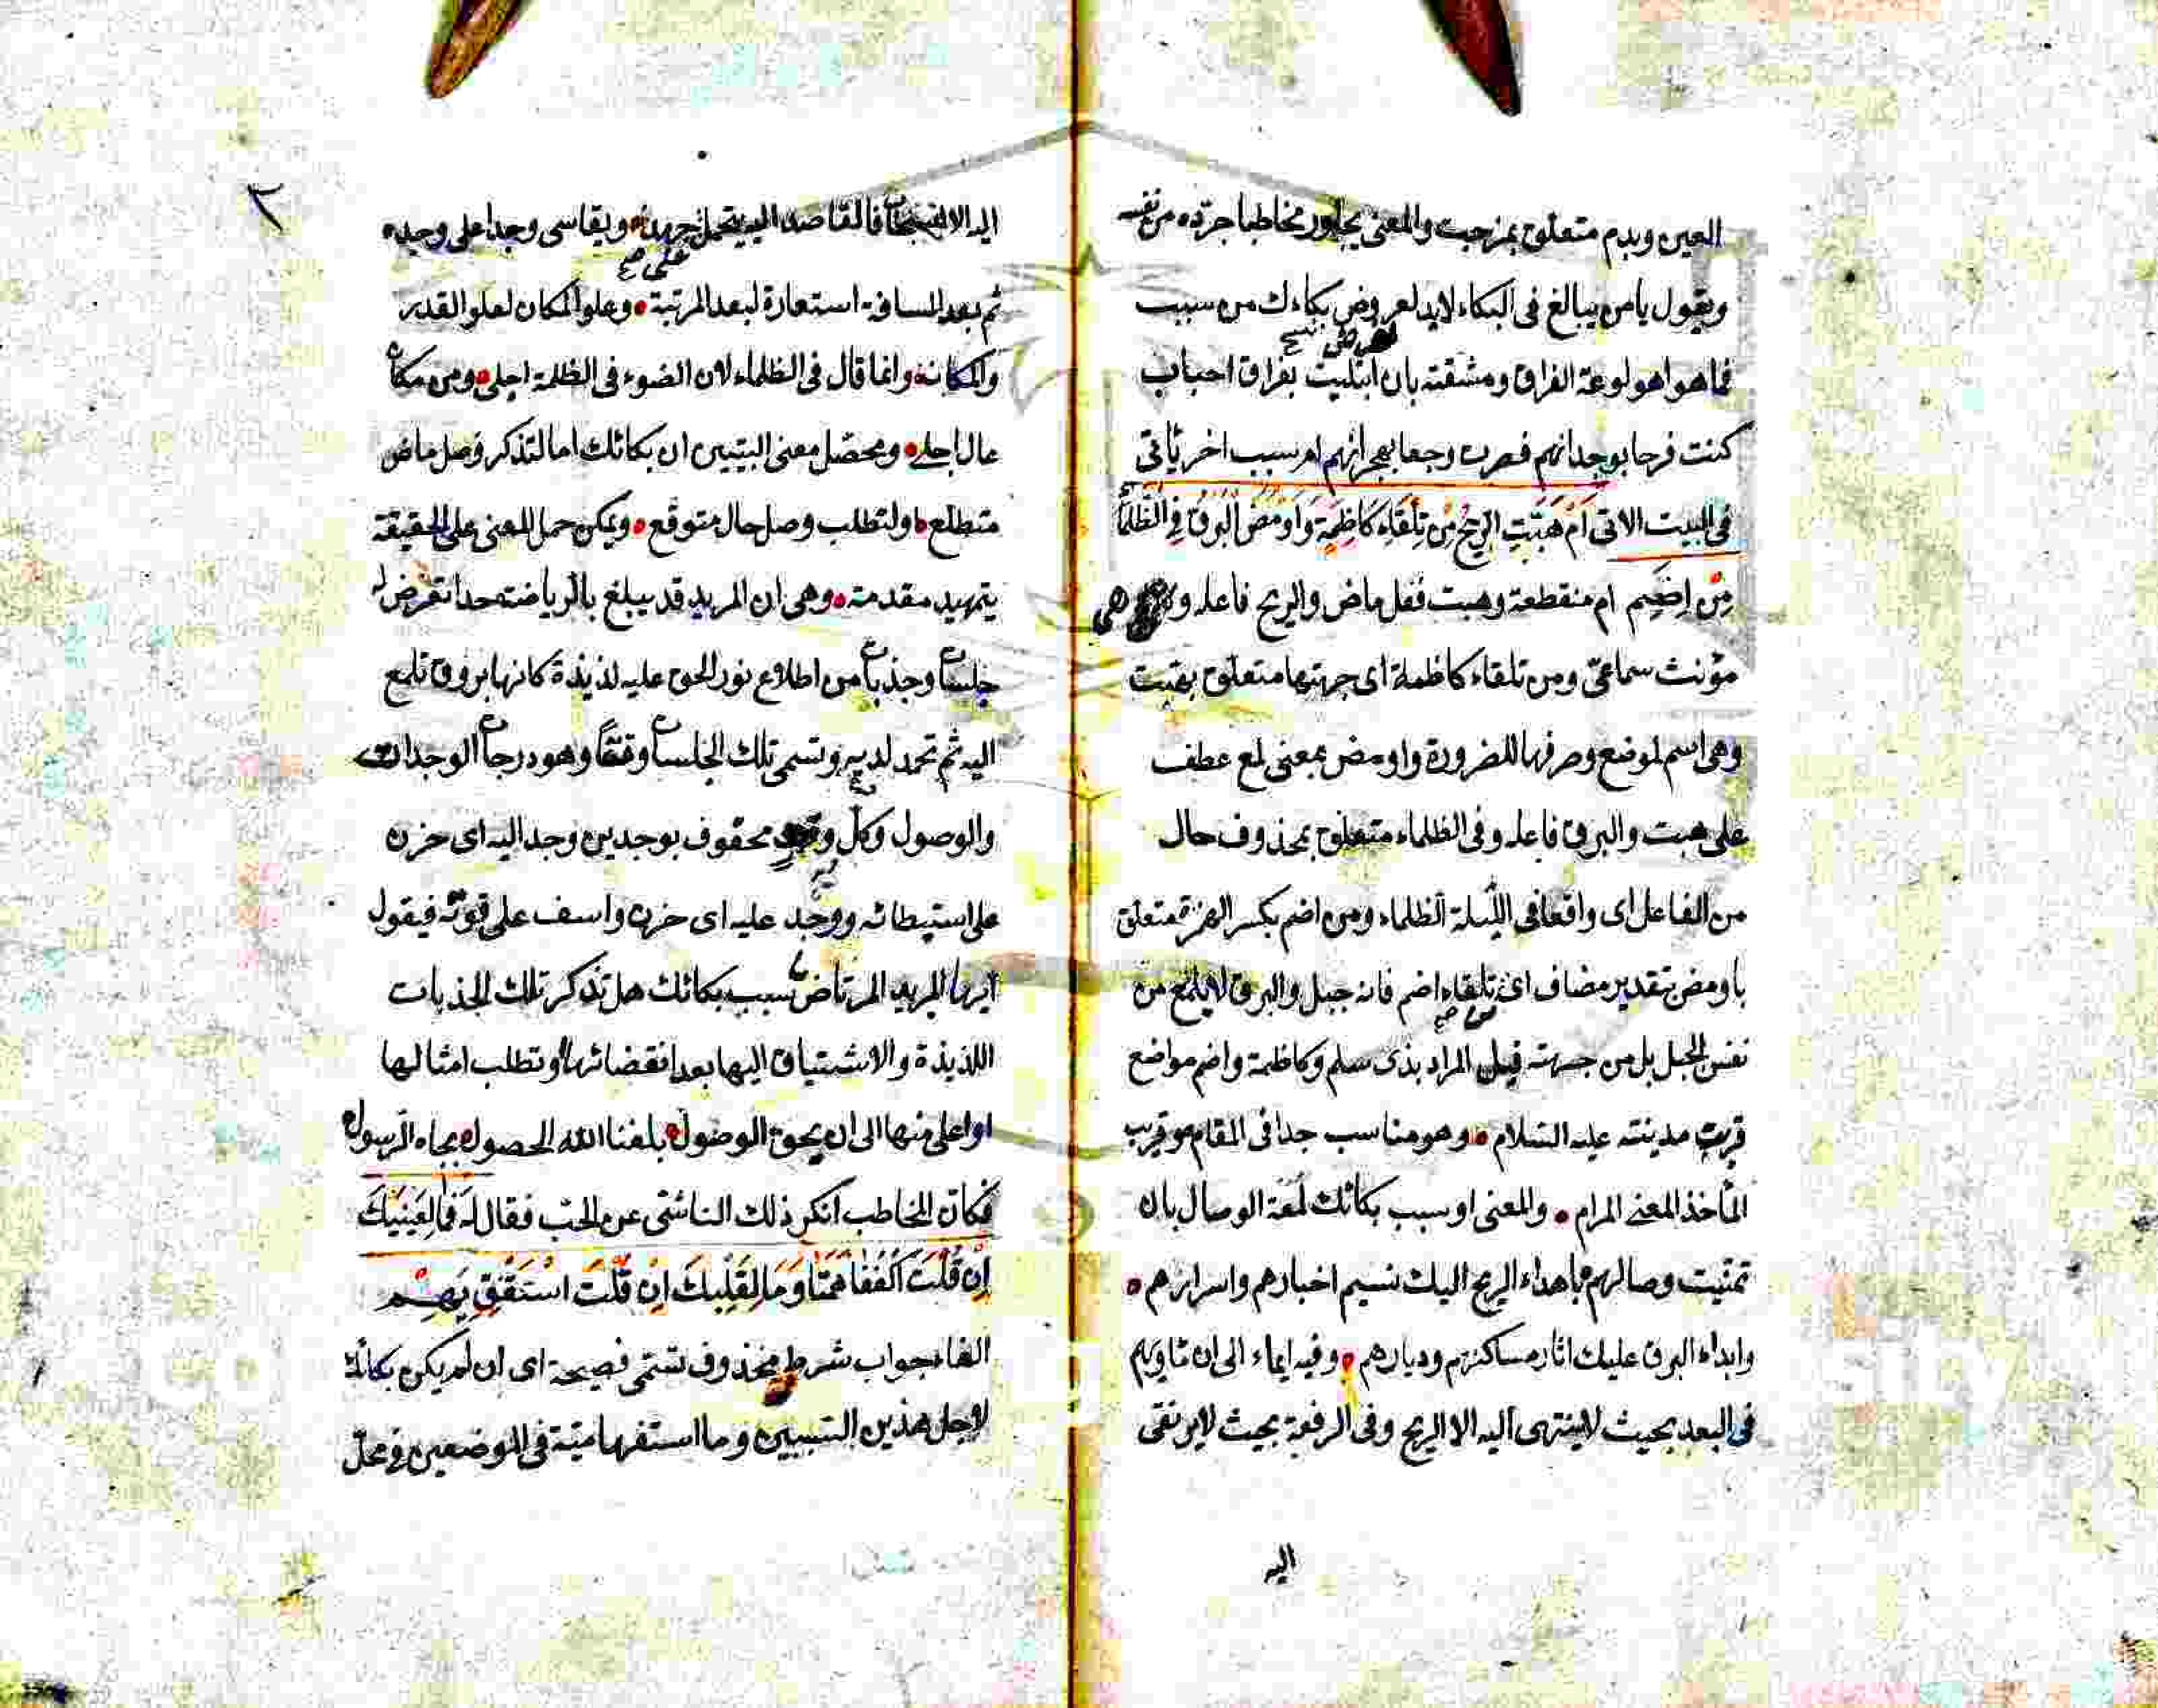 العين وبدم متعلق بمزجت والمعنى يحاور مخاطبا جرّده من نفسه
ويقول يامن يبالغ فى البكاء لابد لعروض بكاءك من سبب
فما هو اهو لوعة الفراق ومشقته بان ابتليت بفراق احباب
كنت فرحا بوجدانهم فصرت وجعا بهجرانهم ام سبب اخر يأتى
فى البيت الاتى اَمْ هَبَّتِ الرّيحُ مِنْ تِلْقَاءِ كَاظِمَةٍ وَاَوْمَضَ الْبَرْقُ فِى الظَّلْمَاءِ
مِنْ اِضَمِ ام منقطعة وهبت فعل ماض والريح فاعله و هى
مؤنث سماعىّ ومن تلقاء كاظمة اى جهتها متعلق بهبت
وهى اسم لموضع وصرفها للضرورة واومض بمعنى لمع عطف
على هبت والبرق فاعله وفى الظلماء متعلق بمحذوف حال
من الفاعل اى واقعا فى الليلة الظلماء ومن اضم بكسر الهمزة متعلق
باومض بتقدير مضاف اى تلقاء اضم فانه جبل والبرق لا يلمع من
نفس الجبل بل من جهته قيل المراد بذى سلم وكاظمة واضم مواضع
قرب مدينته عليه السّلام وهو مناسب جدا فى المقام وقريب
المأخذ لمعنى المرام والمعنى او سبب بكائك لمعة الوصال بان
تمنّيت وصالهم باهداء الريح اليك نسيم اخبارهم واسرارهم
وابداء البرق عليك اثار مساكنهم وديارهم وفيه ايماء الى ان
فى البعد بحيث لاينتهى اليه الا الريح وفى الرفعة بحيث لايرتقى
اليه
٢
اليه الا فالقاصد اليه يتحمل جهدا ويقاسى وجدا على وجده
ثم بعد المسافة استعارة لبعد المرتبة وعلو المكان لعلو القدر
على صح
والمكانة وانما قال فى الظلماء لان الضوء فى الظلمة اجلى ومن مكان
عال اجلى ومحصّل معنى البيتين ان بكائك اما لتذكر وصل ماض
متطلع او لتطلب وصل حال متوقع ويمكن حمل المعنى على الحقيقة
بتمهيد مقدمة وهى ان المريد قد يبلغ بالرياضة حدا تعرض له
خلسات وجذبات من اطلاع نور الحق عليه لذيذة كانها بروق تلمع
اليه ثم تخمد لديه وتسمى تلك الخلسات وقتا وهو درجات الوجدان
والوصول وكلّ وقت محفوف بوجدين وجد اليه اى حزن
على استبطائه ووجد عليه اى حزن واسف على فوته فيقول
ايها المريد المرتاض سبب بكائك هل تذكر تلك الجذبات
اللذيذة والاشتياق اليها بعد انقضائها او تطلب امثالها
او اعلى منها الى ان يحق الوصول بلغنا الله الحصول بجاه الرسول
فكان المخاطب انكر ذلك الناشئ عن الحب فقال له فَمَا لِعَيْنَيْكَ
اِنْ قُلْتَ اكْفُفَا هَمَتَا وَمَا لِقَلْبِكَ اِنْ قُلْتَ اسْتَفِقْ يَهِمِ
الفاء جواب شرط محذوف تسمّى فصيحة اى ان لم يكن بكائك
لاجل هذين السببين وما استفهامية فى الموضعين فى محلّ